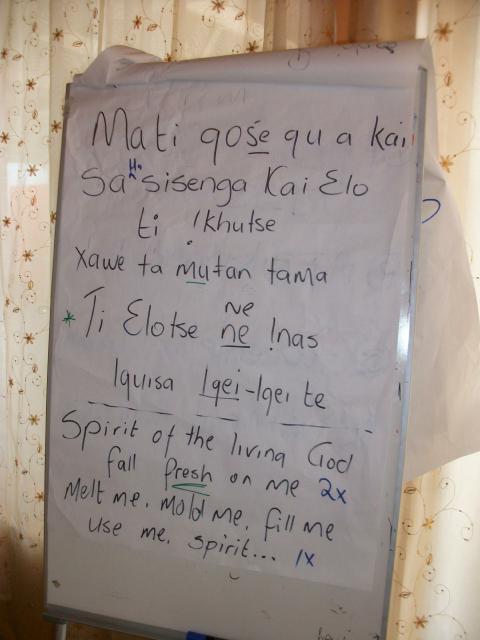 Mati qośe qu a kai
Sa H. sisenga Kai Elo
ti !khutse
Xawe ta mutan tama
* Ti Elotse ne ne !nas
Iquisa Iqei-Iqei te
Spirit of the living God
fall fresh on me 2x
Melt me. mold me. fill me
use me. spirit... 1x